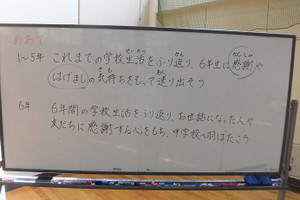 めあて
1〜5年 これまでの学校生活をふり返り、6年生に感謝や
はげましの気持ちをもって送り出そう
6年 6年間の学校生活をふり返り、お世話になった人や
友だちに感謝する心をもち、中学校へ羽ばたこう